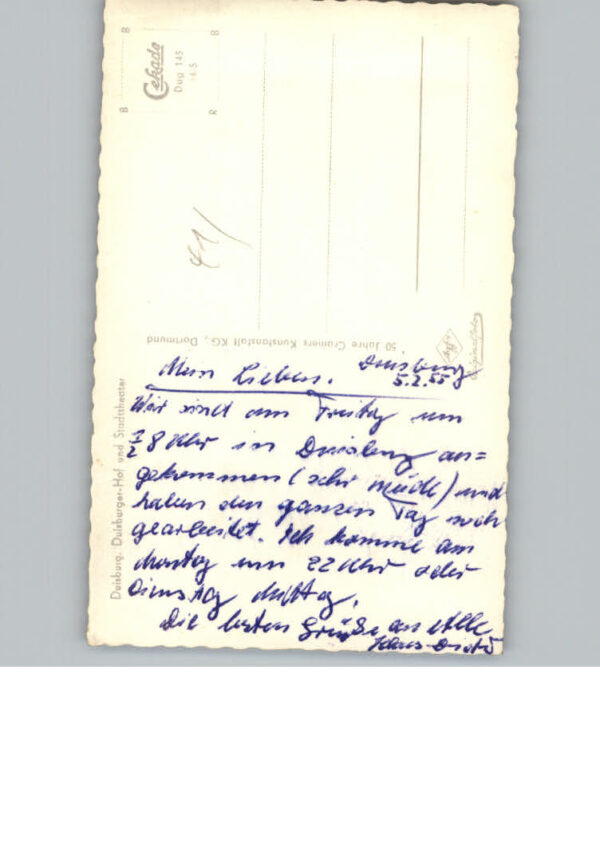 Cekade
Dug 145
14 S
50 Jahre Cramers Kunstanstalt KG., Dortmund
Agfa
Duisburg. Duisburger-Hof und Stadttheater
41/
Duisburg
5.2.55
Mein Lieben.
Wir sind am Freitag um
1/2 8 Uhr in Duisburg an=
gekommen (sehr müde) und
haben den ganzen Tag noch
gearbeitet. Ich komme am
Montag um 22 Uhr oder
Dienstag Mittag.
Die besten Grüße an Alle
Hans-Dieter